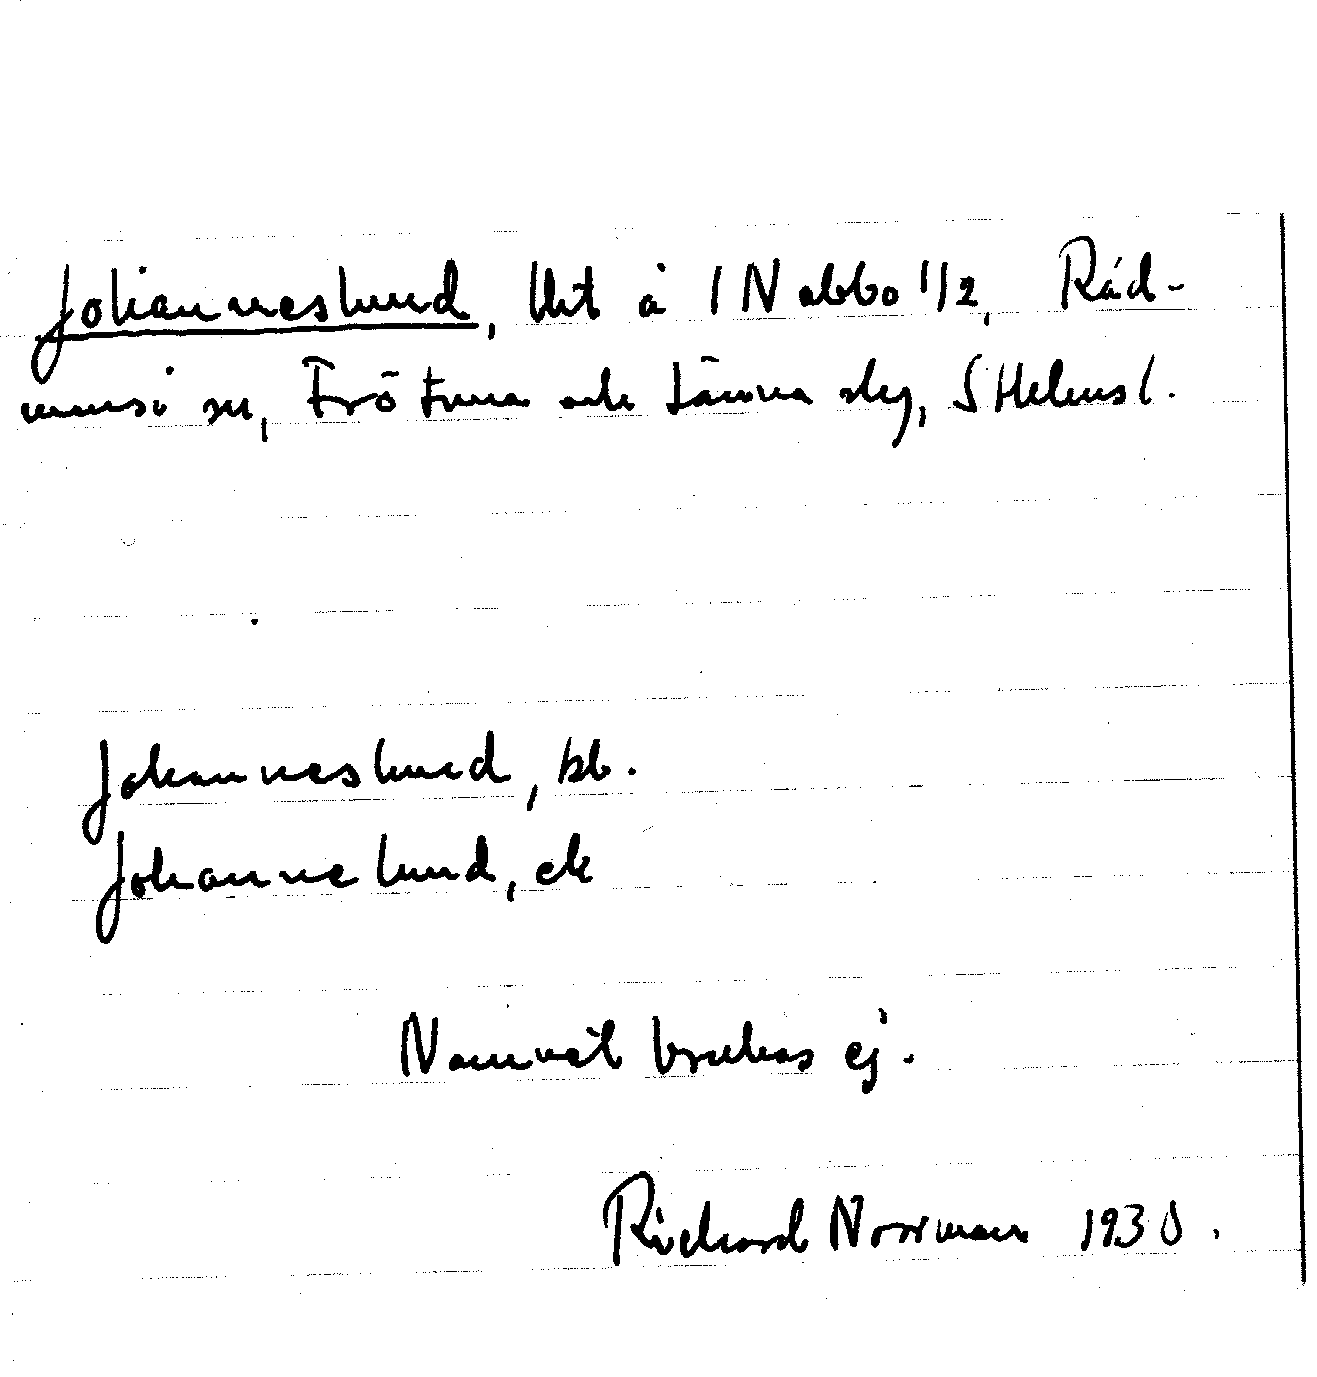 Johanneslund, lht å 1 Nabbo 1/2, Råd-
mansö sn, Frötuna och Länna skg, S Helensl.
Johanneslund, kb.
Johannelund, ek
Namnet brukas ej.
Richard Norrman 1930.